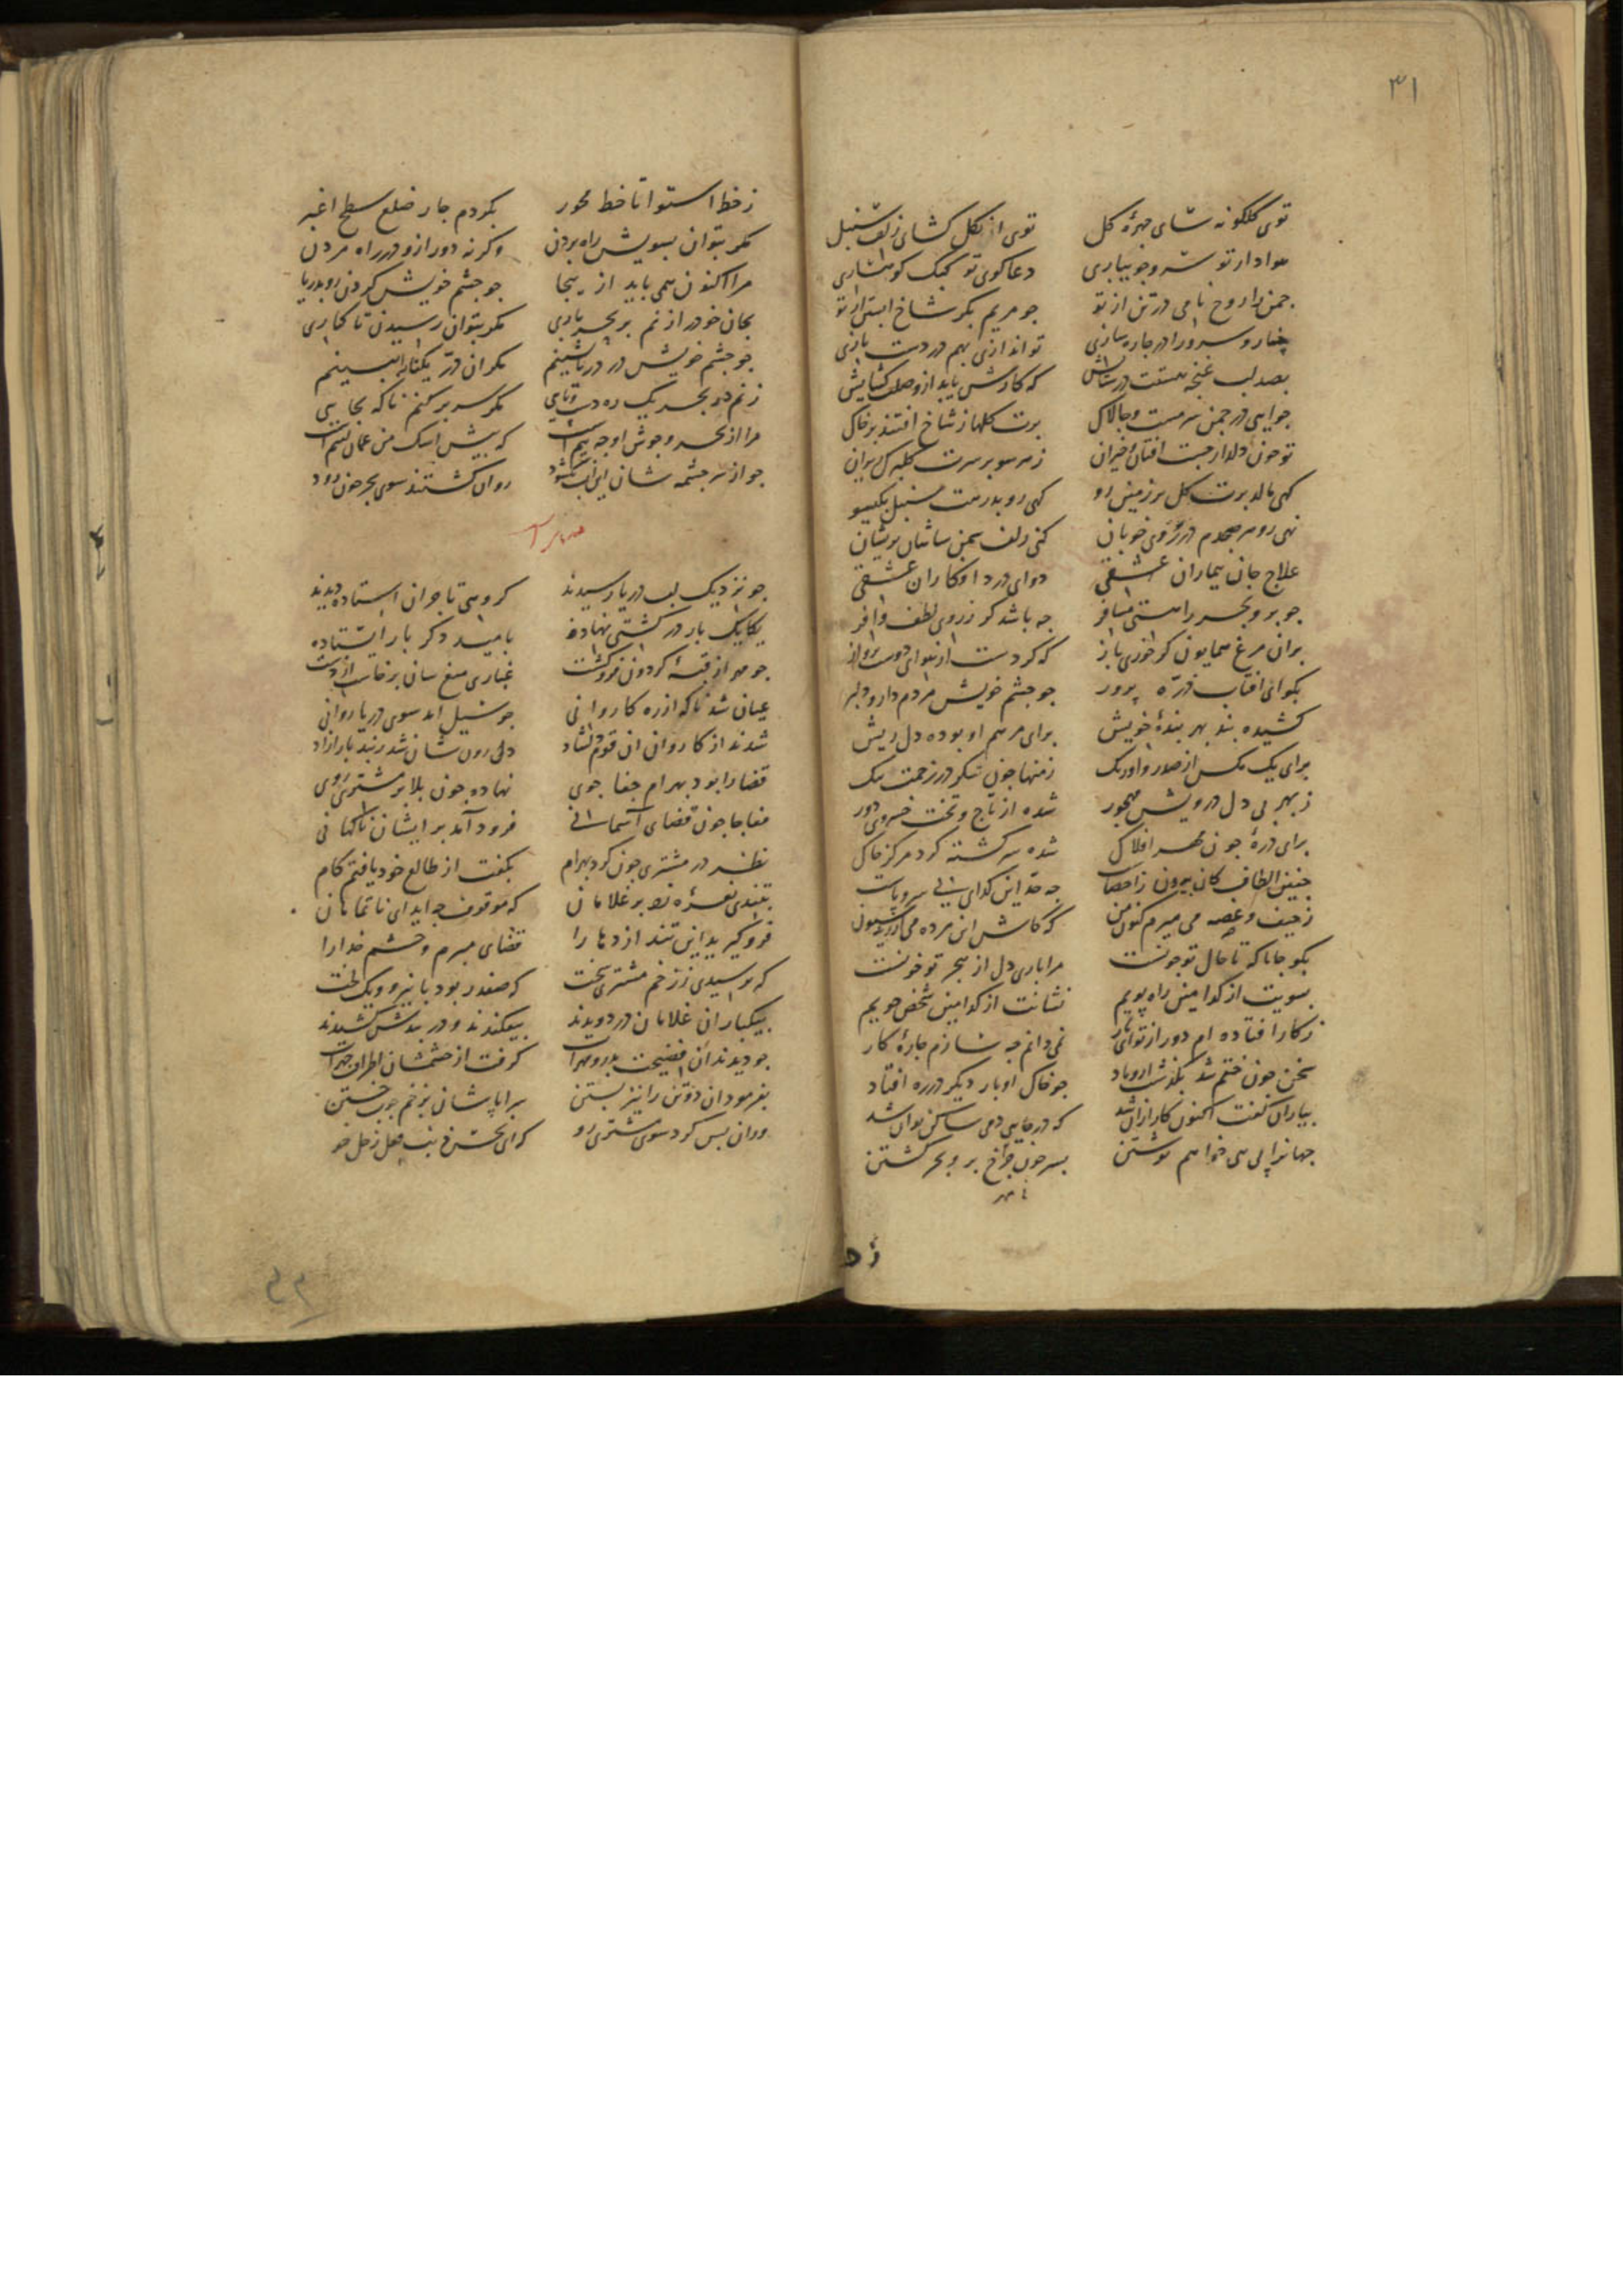 ۳۱
توی گلگونه شای چهرهٔ کل توی از کل کشای زلف سنبل
هوادار تو سرو جویباری دعاکوی تو کبک کوهساری
جمن را روح نامی در تن از تو جو مریم بکر شاخ ابستن از تو
چنار و سرو را در جاره سازی تو اندازی بهم در دست بازی
بصد لب غنچه هست در ستایش که کارش یابد از وصلت کشایش
جو ایی در جمن سرمست و جالاک برت کلها ز شاخ افتند بر خاک
تو جون دلدار جست افتان و خیزان ز هر سو بر سرت کلبرک ریزان
کهی مالد برت کل بر زمین رو کهی روبد رهت سنبل بکیسو
نهی رو هر صبحدم در روی خوبان کنی زلف سمن سایان پریشان
علاج جان بیماران عشقی دوای درد افکاران عشقی
جو بر و بحر را هستی مسافر جه باشد کر ز روی لطف وافر
بران مرغ همایون کر خوری باز که کردست از هوای دوست پرواز
بکو ای افتاب ذره پرور جو چشم خویش مردم دار و دلبر
کشیده بند بهر بندهٔ خویش برای مرهم او بوده دل ریش
برای یک مکس از صدر و اورنک ز منها جون شکر در زحمت تنک
ز بهر بی دل درویش مهجور شده از تاج و تخت خسروی دور
برای ذرهٔ جون مهر افلاک شده سرکشته کرد مرکز خاک
جنین الطاف کان بیرون ز احصاست جه حد این کدای بی سر و پاست
ز حیف و غصه می میرم کنون من که کاش این مرده می
بکو جانا که تا حال تو جونست مرا باری دل از هجر تو خونست
بسویت از کدامین راه پویم نشانت از کدامین شخص جویم
ز کار افتاده ام دور از تو ای یار نمی دانم جه سازم جارهٔ کار
سخن جون ختم شد بکذشت ازو باد جو خاک او بار دیکر در ره افتاد
بیاران کفت اکنون کار ازان شد که در جایی دمی ساکن توان شد
جهانرا پی همی خواهم نوشتن بسر جون جرخ بر و بحر کشتن
ز خط استوا تا خط محور بکردم جار ضلع سطح اغبر
مکر بتوان بسویش راه بردن وکرنه دور ازو در راه مردن
مرا اکنون همی باید از ینجا جو جشم خویش کردن رو بدریا
بجان خود را زنم بر بحر باری مکر بتوان رسیدن تا کناری
جو جشم خویش در دریا نشینم مکر ان در یکتا را ببینم
زنم در بحر یک ره دست و پایی مکر سر بر کنم ناکه بجایی
مرا از بحر و جوش او جه بیم است که پیش اشک من عمان یتیم است
جو از سر جشمه شان این اب بکشود روان کشتند سوی بحر جون رود
جو نزدیک لب دریا رسیدند کروهی تاجران استاده دیدند
یکایک بار در کشتی نهاده بامید دکر بار ایستاده
جو مهر از قبهٔ کردون فروکشت غباری میغ سان برخاست از دشت
عیان شد ناکه از ره کاروانی جو سیل امد سوی دریا روانی
شدند از کاروان ان قوم دلشاد دل رون شان شد ز بند بار ازاد
قضا را بود بهرام جفا جوی نهاده جون بلا بر مشتری روی
مفاجا جون قضای آسمانی فرود آمد بر ایشان ناکهانی
نظر در مشتری جون کرد بهرام بکفت از طالع خود یافتم کام
بتندی نعره زد بر غلامان که موقوف جه اید ای ناتمامان
فرو کیرید این تند ازدها را قضای مبرم و خشم خدا را
که ترسیدی ز زخم مشتری سخت که صفدر بود با نیرو و یک لخت
بیکبار ان غلامان در دویدند بیفکندند و در بندش کشیدند
جو دیدند ان فضیحت بدر و مهراب کرفت از جشمشان اطراف
بفرمود ان دو تن را نیز بستن سراپاشان بزخم جوب خستن
وزان پس کرد سوی مشتری رو که ای